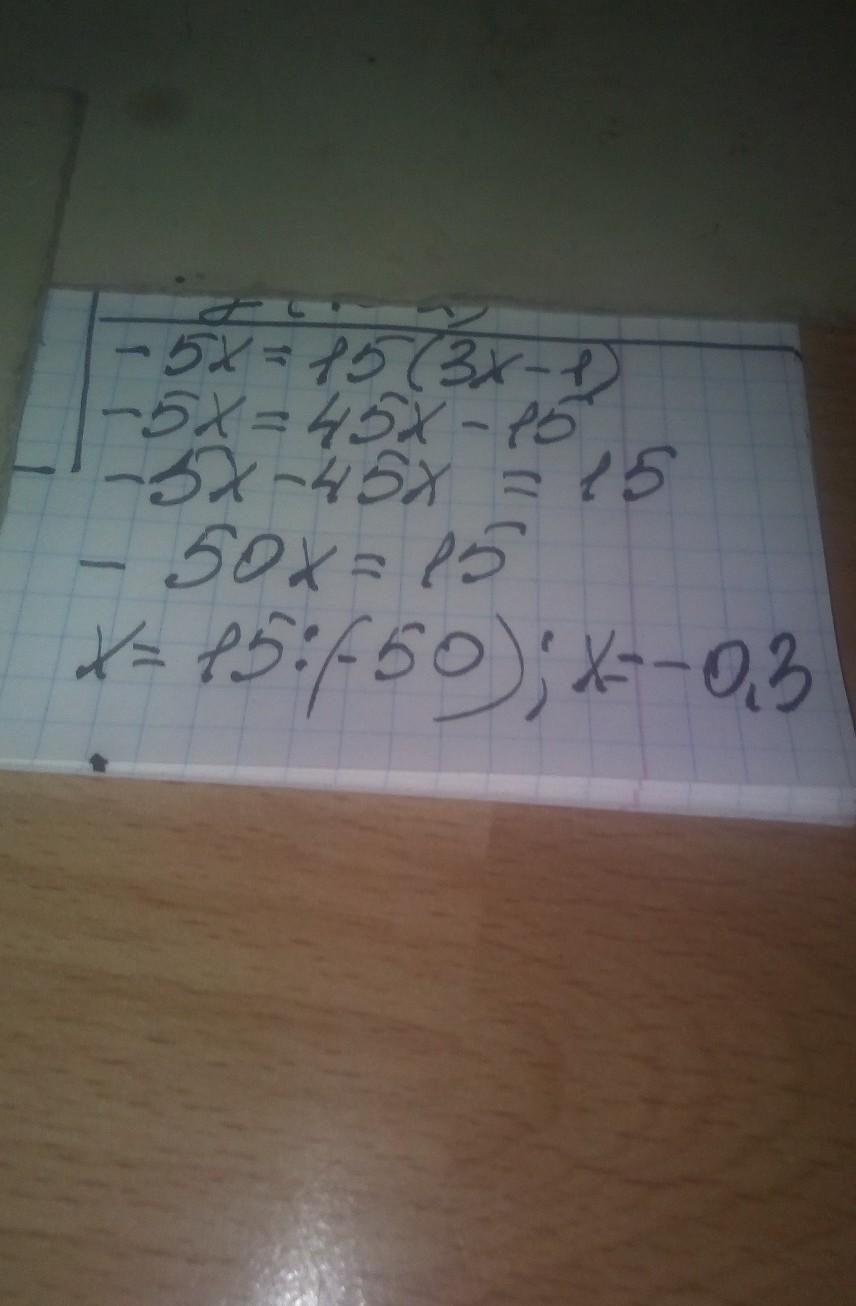 -5x=15(3x-1)
-5x=45x-15
-5x-45x = 15
- 50x=15
x= 15:(-50); x=-0,3